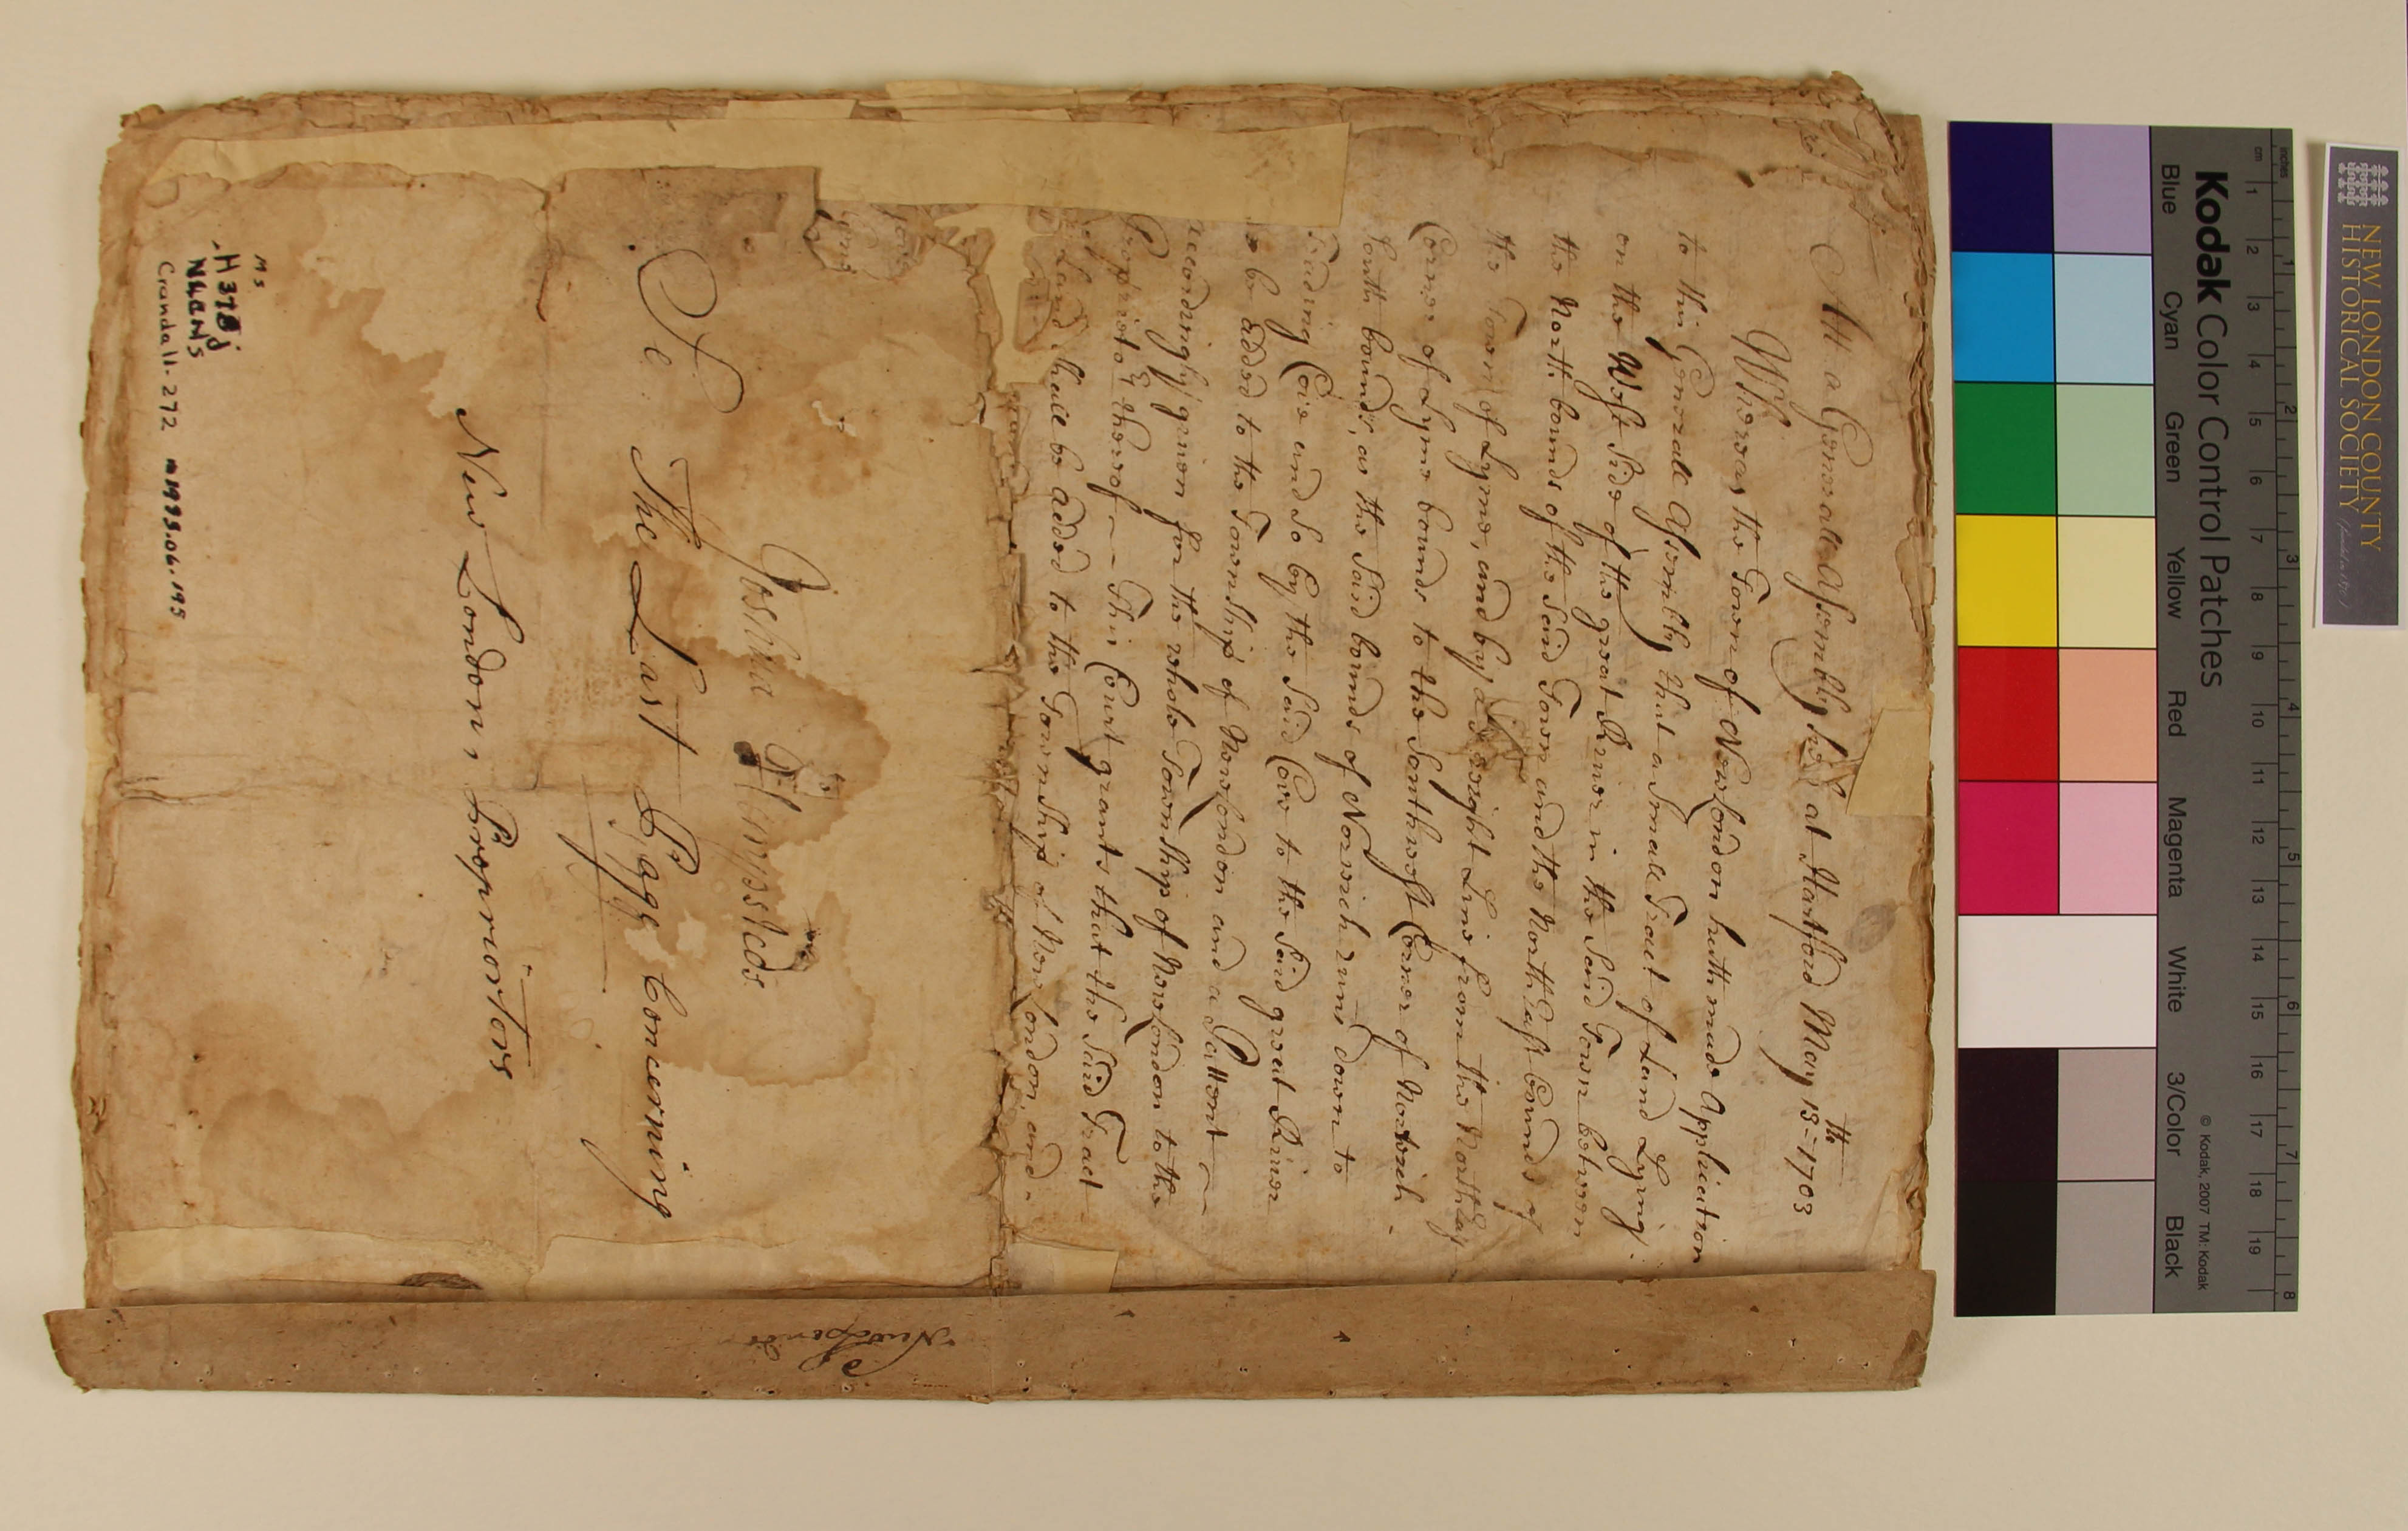 Att a Generall Assembly held at Hartford May 13th = 1703
Whereas the Town of New London hath made Application
to this Generall Assembly that a Small Tract of Land Lying
on the West Side of the great River in the Said Town between
the North bounds of the Said Town and the North East bounds of
the Town of Lyme, and by a streight Line from the North East
Corner of Lyme bounds to the Southwest Corner of Norwich
South bounds, as the Said bounds of Norwich runs down to
Trading Cove and So by the Said Cove to the Said great River
to be added to the Township of New London and a Pattent
accordingly given for the whole Township of New London to the
Proprietors thereof -- This Court grants that the Said Tract
of Land shall be added to the Township of New London, and
Joshua Hempsteds
Se The Last Page Concerning
New London, Proprietors
MS
H378j
NLBNS
Crandall. 272 m1995.06.195
Kodak Color Control Patches
© Kodak, 2007 TM: Kodak
Blue Cyan Green Yellow Red Magenta White 3/Color Black
inches 1 2 3 4 5 6 7 8
cm 1 2 3 4 5 6 7 8 9 10 11 12 13 14 15 16 17 18 19
NEW LONDON COUNTY
HISTORICAL SOCIETY